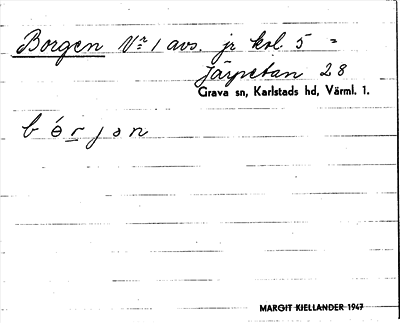 Borgen Nr 1 avs. jr kol. 5 =
Järpetan 28
Grava sn, Karlstads hd, Värml. 1.
b ó r j ə n
MARGIT KIELLANDER 1947